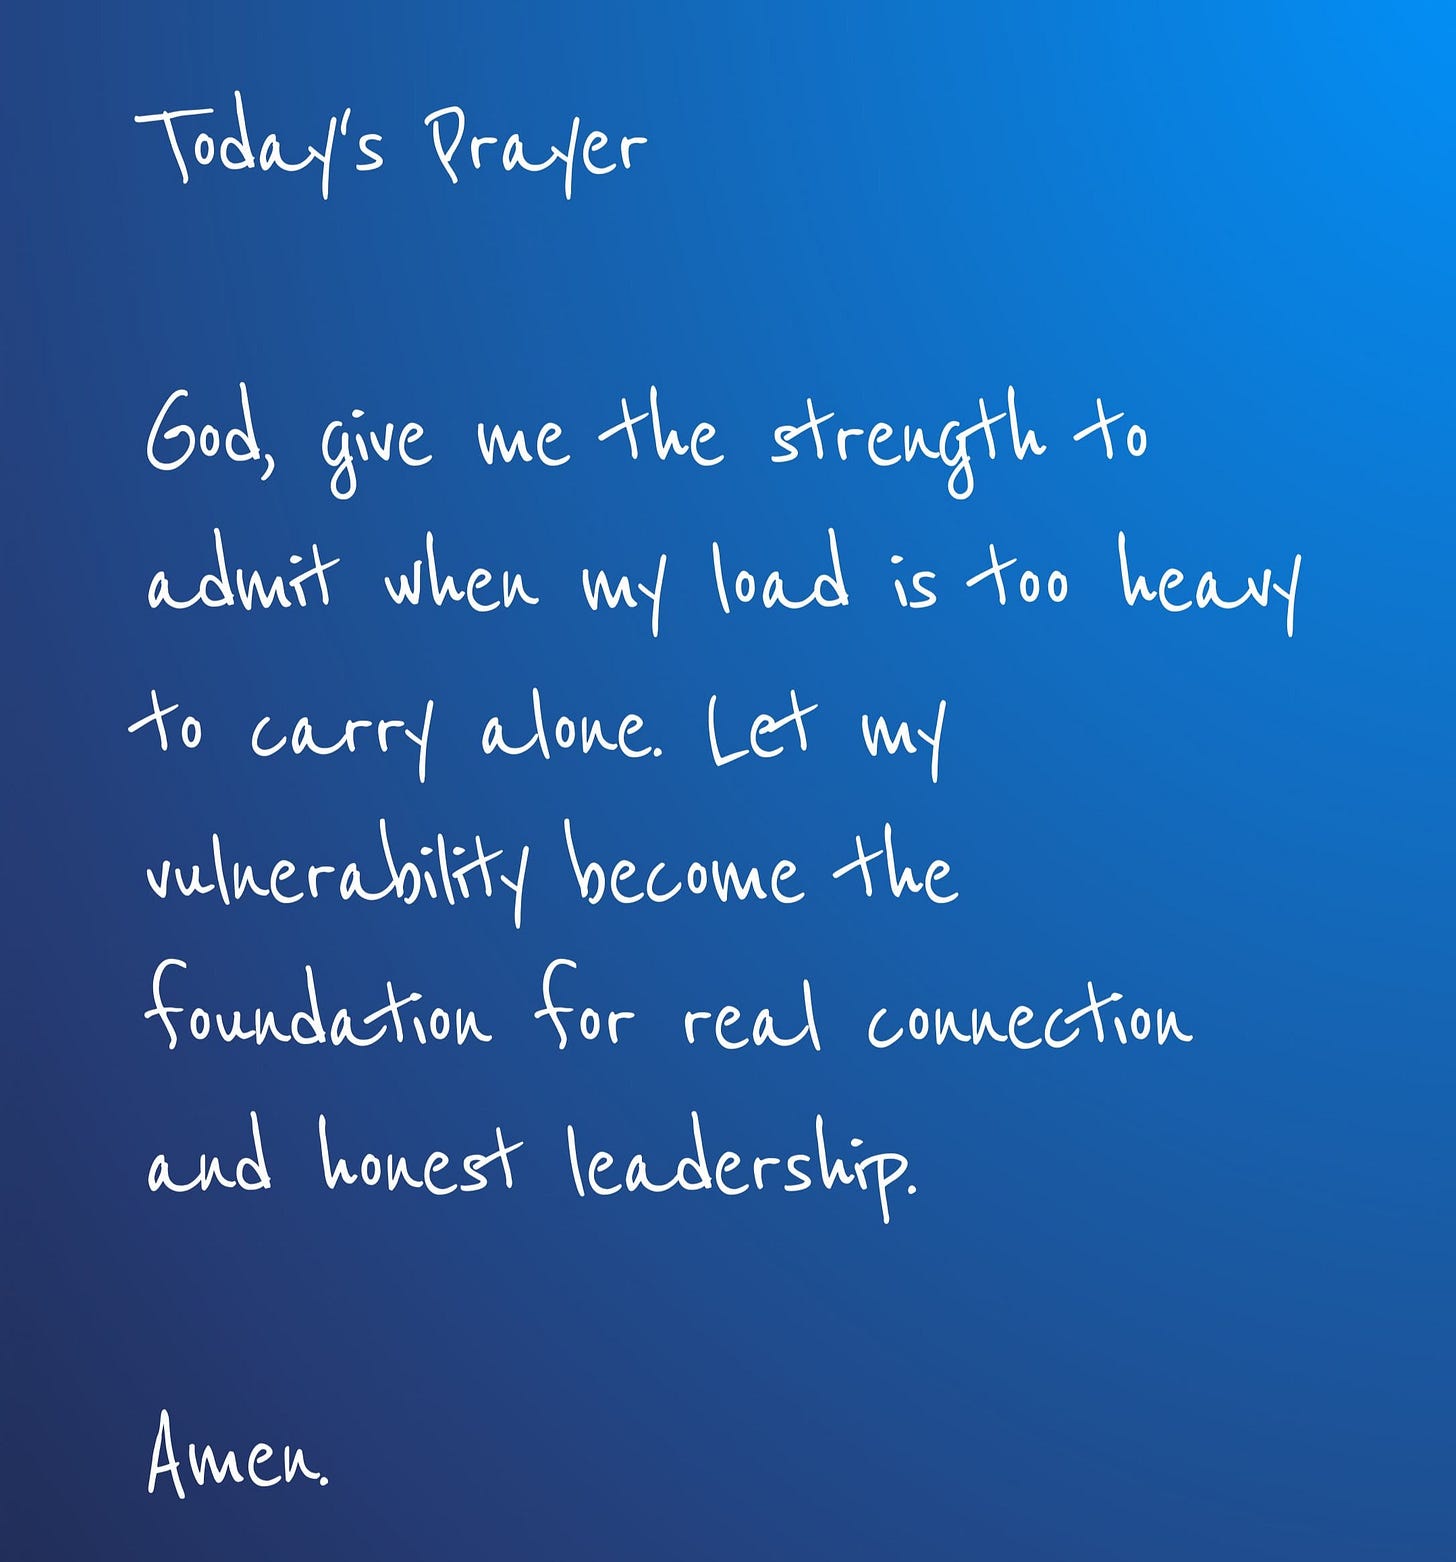 Today's Prayer
God, give me the strength to
admit when my load is too heavy
to carry alone. Let my
vulnerability become the
foundation for real connection
and honest leadership.
Amen.